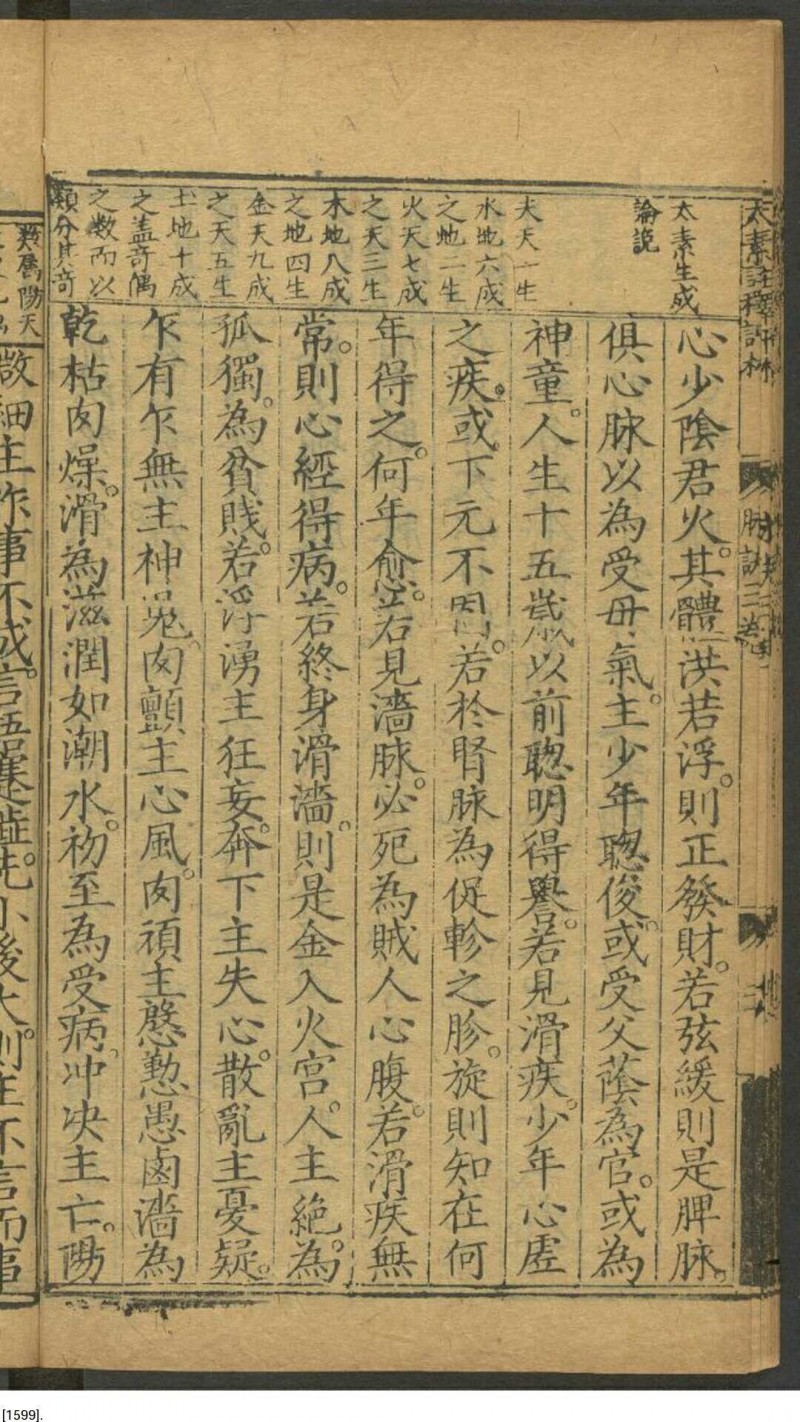 太素註釋評林
脉訣三卷
太素生成
論説
夫天一生
水地六成
之地二生
火天七成
之天三生
木地八成
之地四生
金天九成
之天五生
土地十成
之蓋奇偶
之数而以
類分其奇
心少陰君火。其體洪若浮。則正發財。若弦緩則是脾脉。
俱心脉以為受母氣。主少年聰俊。或受父蔭為官。或為
神童。人生十五歲以前聰明得譽。若見滑疾。少年心虛
之疾。或下元不因。若於腎脉為促軫之胗。旋則知在何
年得之。何年愈。若見濇脉。必死為賊人心腹。若滑疾無
常。則心經得病。若終身滑濇。則是金入火宫。人主絶。為
孤獨。為貧賎。若浮湧主狂妄。奔下主失心。散亂主憂疑。
乍有乍無主神䰟。囱顫主心風。囱頑主慇懃愚鹵濇為
乾枯囱燥。滑為滋潤如潮水。初至為受病。冲决主亡。陽
数属陽天
散細主作事不成。言語蹇澁。先小後大。則主不言而事
[1599].